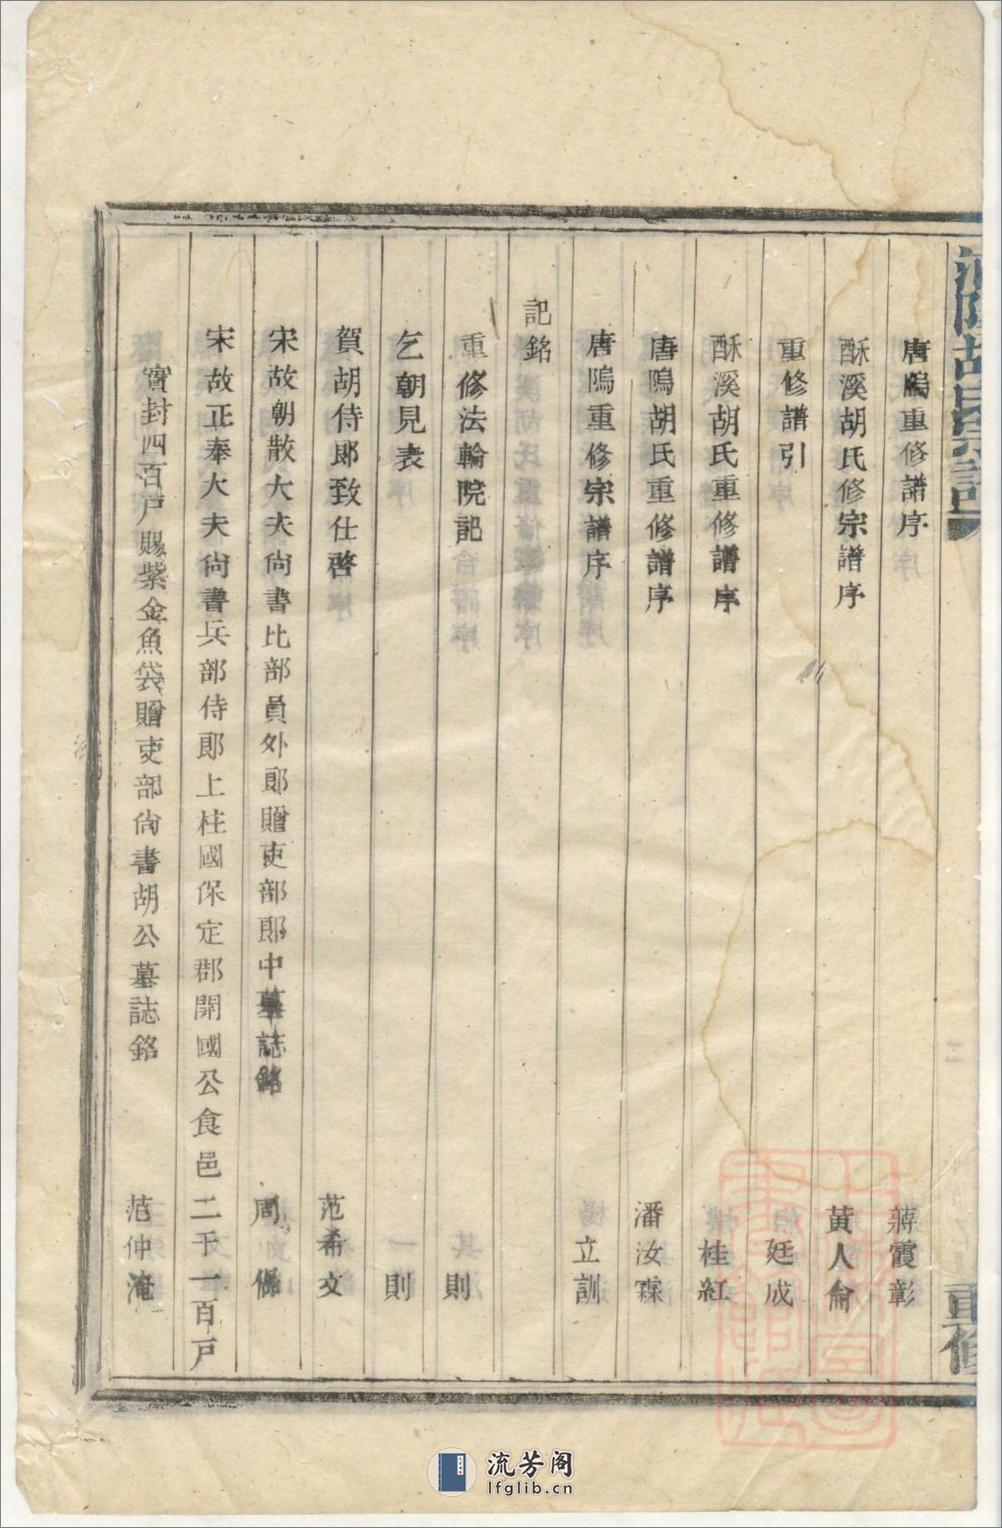 胡氏宗譜
重修
唐鄔重修譜序 蔣霞彰
酥溪胡氏修宗譜序 黃人倫
重修譜引 廷成
酥溪胡氏重修譜序 桂紅
唐鄔胡氏重修譜序 潘汝霖
唐鄔重修宗譜序 立訓
記銘
重修法輪院記 則
乞朝見表 則
賀胡侍郎致仕啓 范希文
宋故朝散大夫尚書比部員外郎贈吏部郎中墓誌銘 周
宋故正奉大夫尚書兵部侍郎上柱國保定郡開國公食邑二千一百戶
實封四百戶賜紫金魚袋贈吏部尚書胡公墓誌銘 范仲淹
流芳阁
lfglib.cn